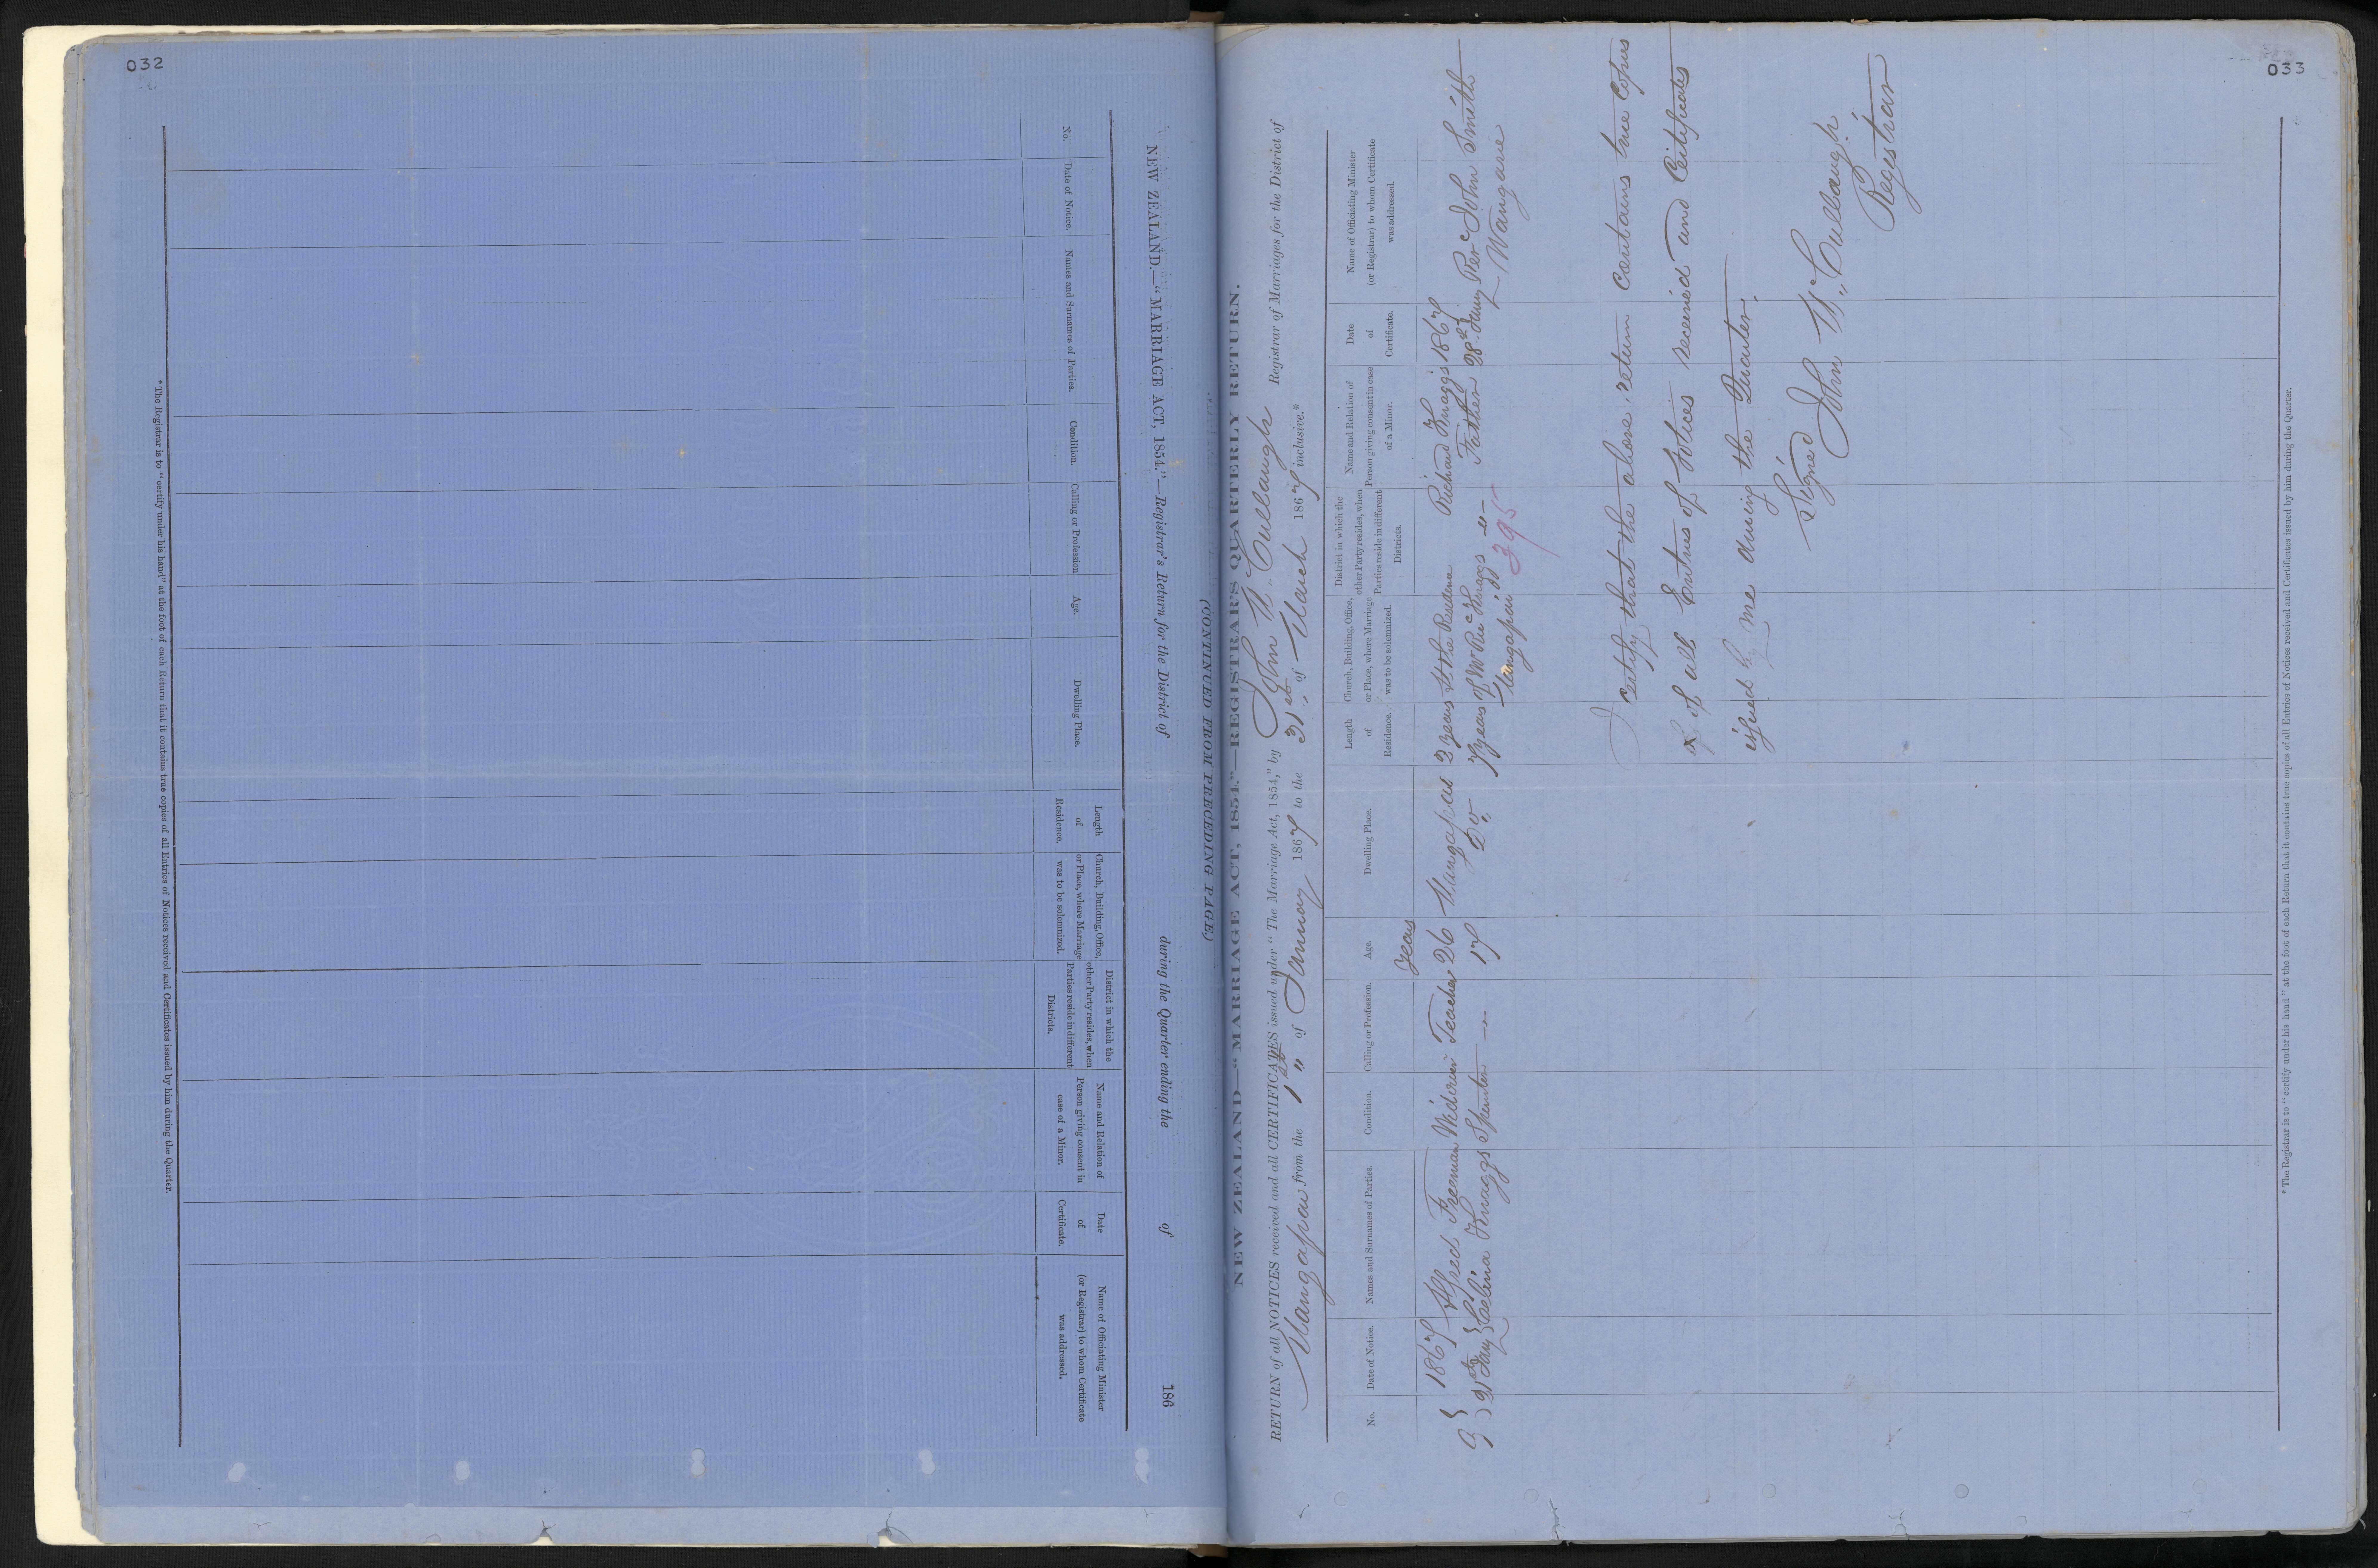 032
NEW ZEALAND.—"MARRIAGE ACT, 1854."—Registrar's Return for the District of during the Quarter ending the of 186
No.
Date of Notice.
Names and Surnames of Parties.
Condition.
Calling or Profession
Age.
Dwelling Place.
Length
of
Residence.
Church, Building, Office,
or Place, where Marriage
was to be solemnized.
District in which the
other Party resides, when
Parties reside in different
Districts.
Name and Relation of
Person giving consent in
case of a Minor.
Date
of
Certificate.
Name of Officiating Minister
(or Registrar) to whom Certificate
was addressed.
* The Registrar is to "certify under his hand" at the foot of each Return that it contains true copies of all Entries of Notices received and Certificates issued by him during the Quarter.
033
(CONTINUED FROM PRECEDING PAGE.)
NEW ZEALAND—"MARRIAGE ACT, 1854."—REGISTRAR'S QUARTERLY RETURN.
RETURN of all NOTICES received and all CERTIFICATES issued under "The Marriage Act, 1854," by John McCullaugh Registrar of Marriages for the District of
Mangapai from the 1st of January 1867 to the 31st of March 1867 inclusive.*
No.
Date of Notice.
Names and Surnames of Parties.
Condition.
Calling or Profession.
Age.
Dwelling Place.
Length
of
Residence.
Church, Building, Office,
or Place, where Marriage
was to be solemnized.
District in which the
other Party resides, when
Parties reside in different
Districts.
Name and Relation of
Person giving consent in case
of a Minor.
Date
of
Certificate.
Name of Officiating Minister
(or Registrar) to whom Certificate
was addressed.
Years
1867 Alfred Freeman Widower Teacher 26 Mangapai 2 years At the Residence Richard Knaggs 1867
9 21st Jany Celina Knaggs Spinster — 17 Do 7 years of Mr Ricd Knaggs Father 28th Jany Revd John Smith
Mangapai Wangarie
395
I certify that the above return contains true copies
of all Entries of Notices received and Certificates
issued by me during the Quarter.
Signed
John McCullaugh
Registrar
* The Registrar is to "certify under his hand" at the foot of each Return that it contains true copies of all Entries of Notices received and Certificates issued by him during the Quarter.